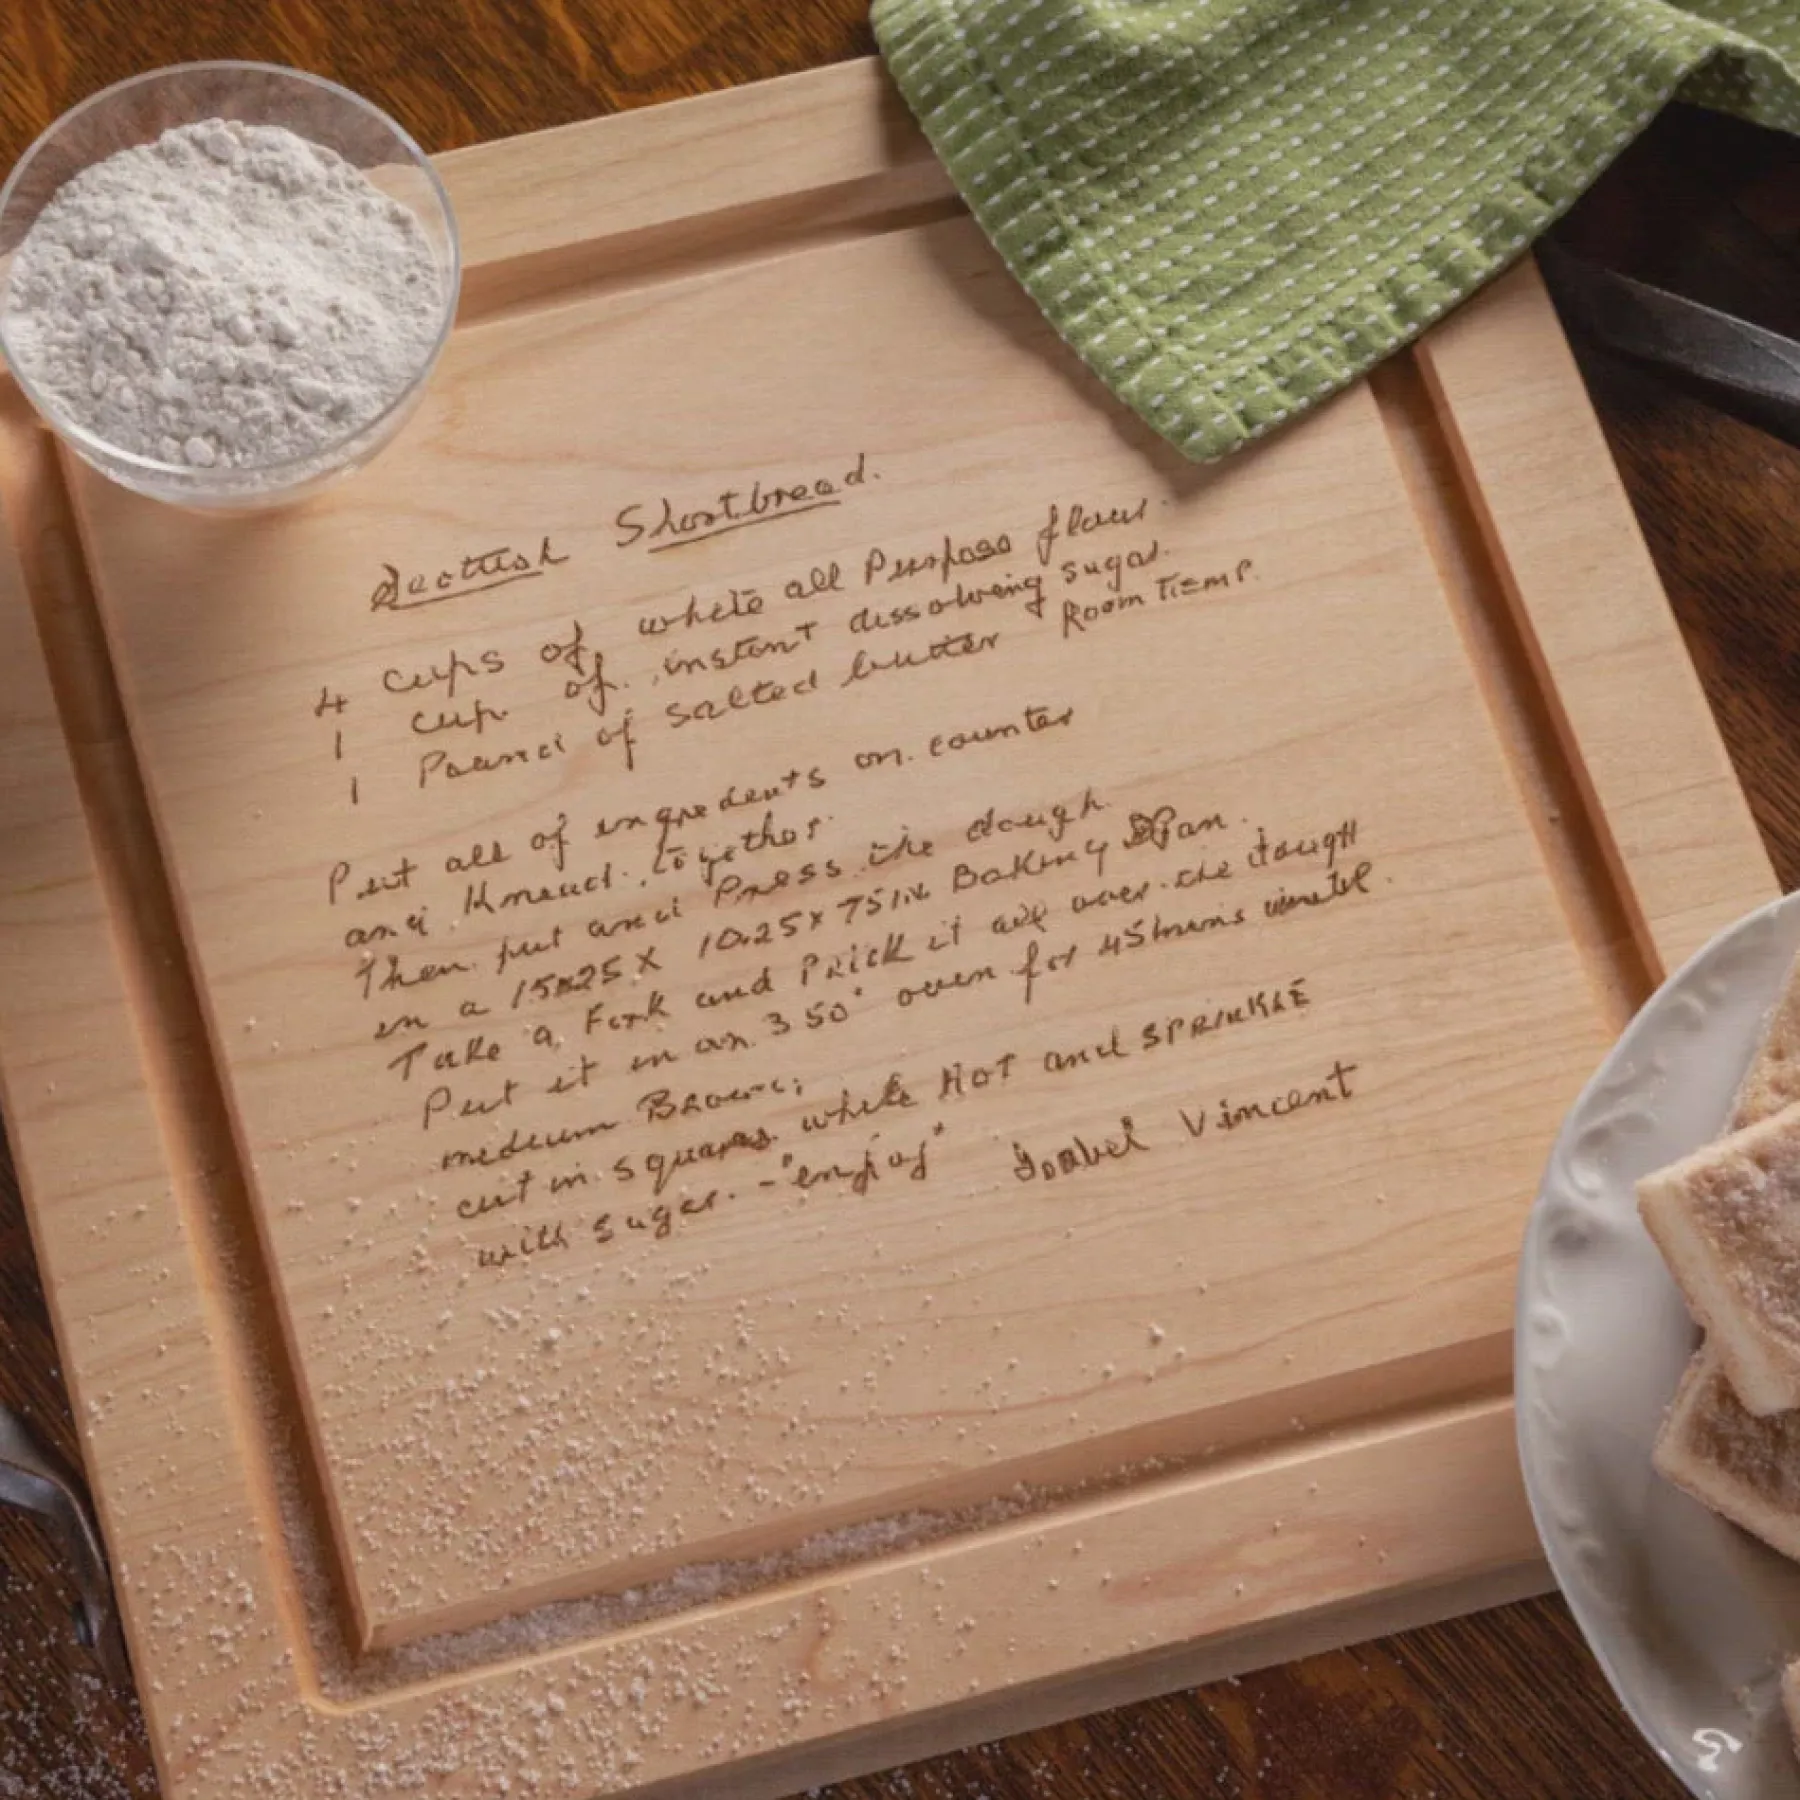 Scottish Shortbread.
4 cups of white all Purpose flour.
1 cup of instant dissolving sugar.
1 Pound of salted butter Room Temp.
Put all of ingredents on counter
and Knead together.
Then put and Press the dough
in a 15x25 x 10.25 x 75 Baking Pan.
Take a Fork and Prick it all over the dough
Put it in an 350° oven for 45 mins until
medium Brown;
cut in squares while Hot and SPRINKLE
with sugar. - "enjoy" Isabel Vincent